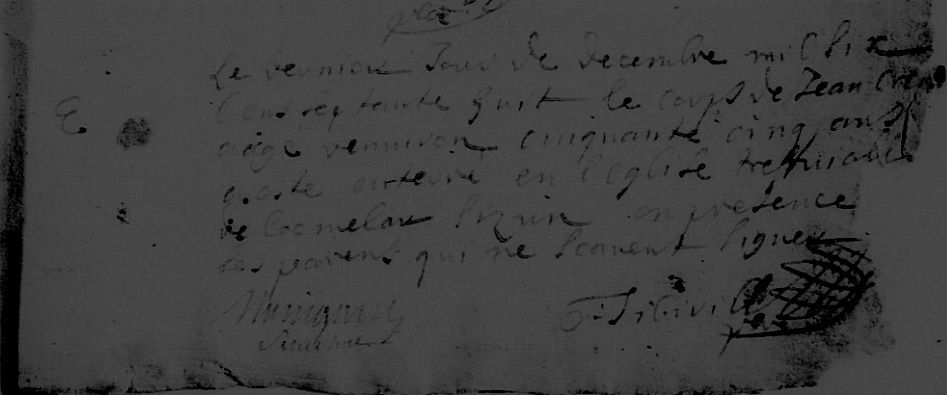 Le dernier Jour de decembre mil six
Cens septante huit le corps de Jean
aagé denviron cinquante cinq ans
a este enterré en l'eglise treffvialle
de locmelar Sizun en presence
des parents qui ne scavent signer